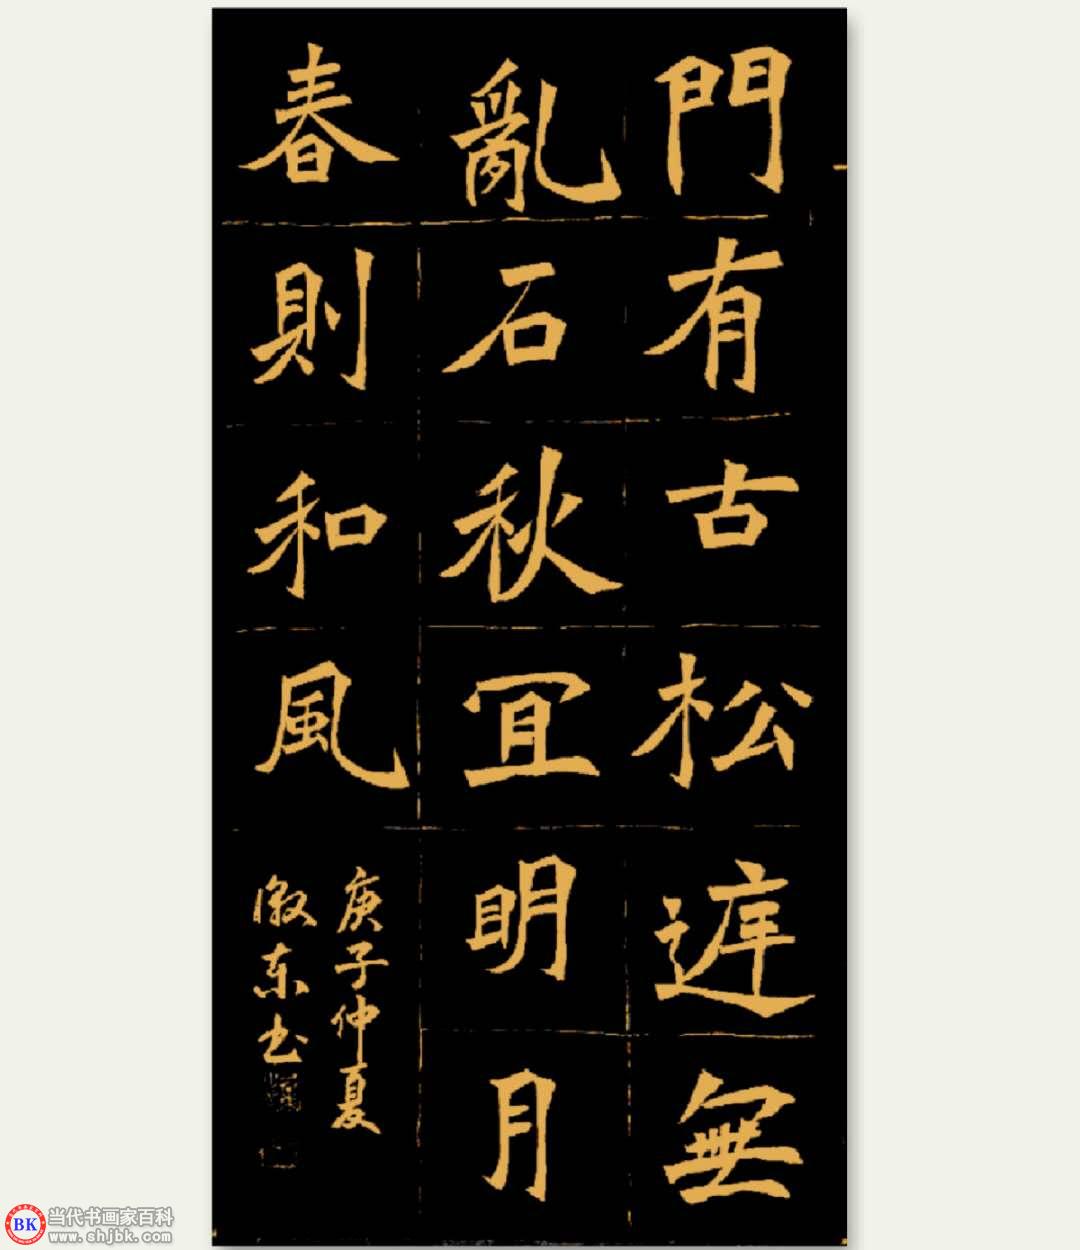 門有古松庭無
亂石秋冝明月
春則和風
庚子仲夏
东书
BK 当代书画家百科
www.shjbk.com